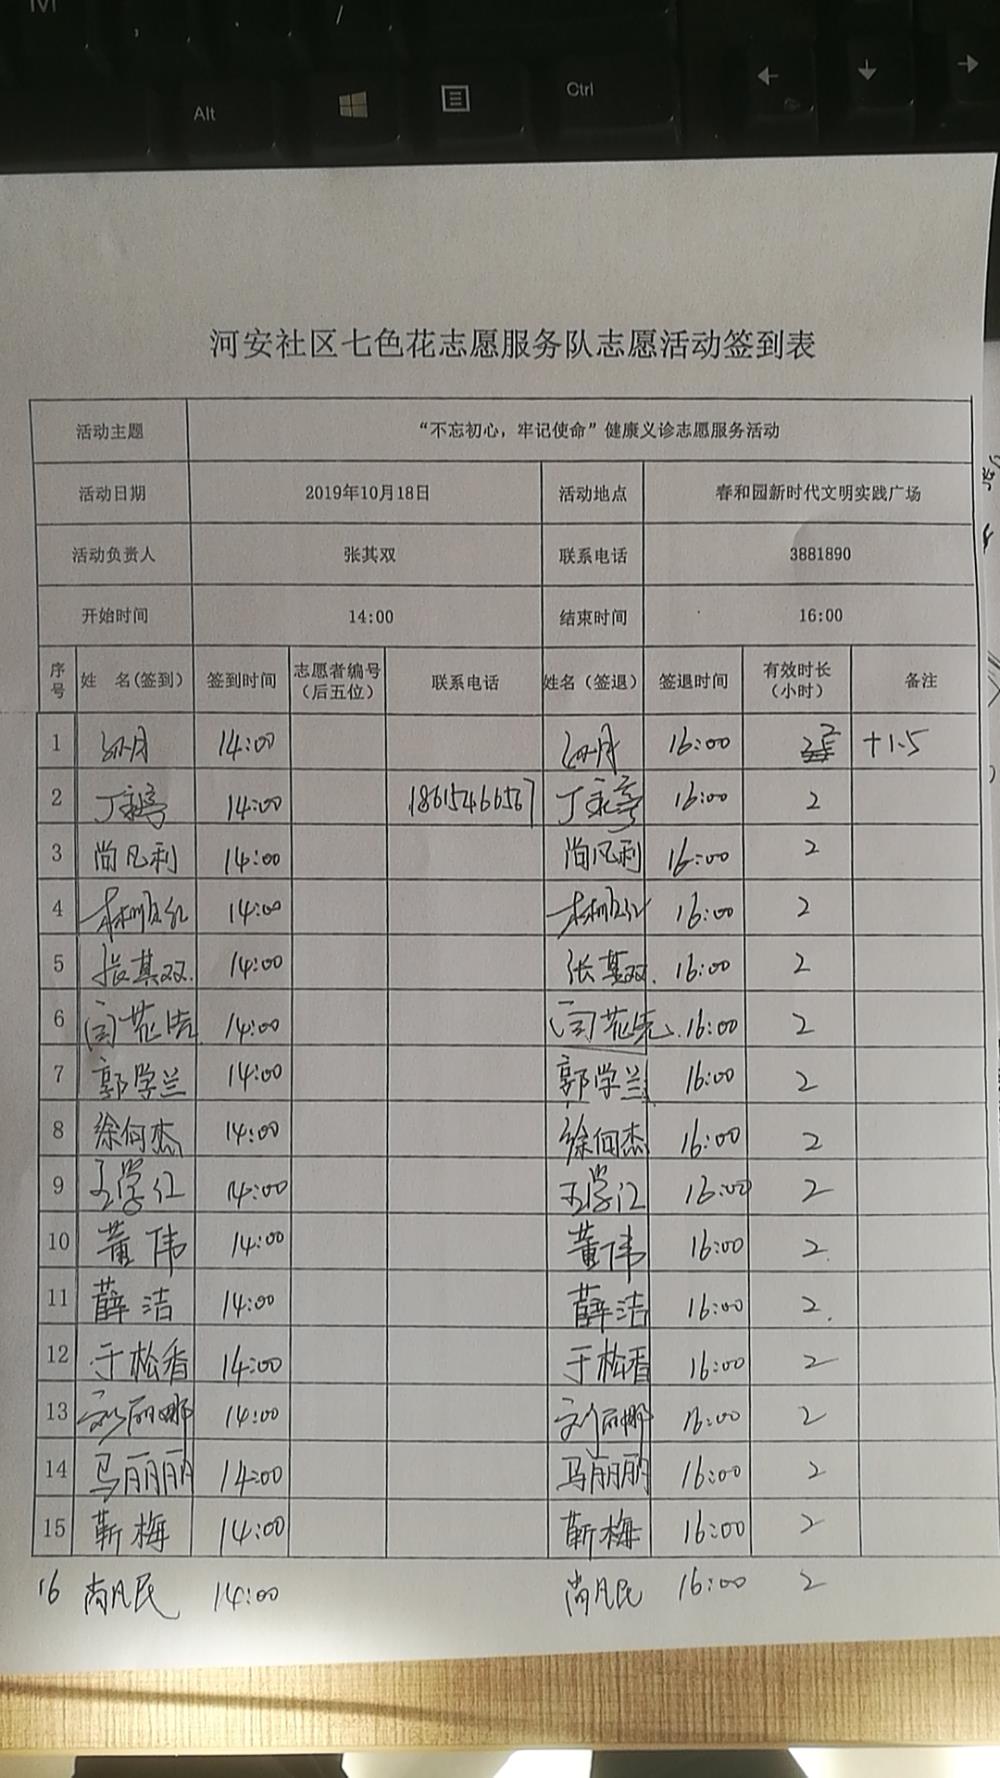 Alt
Ctrl
河安社区七色花志愿服务队志愿活动签到表
活动主题 “不忘初心，牢记使命”健康义诊志愿服务活动
活动日期 2019年10月18日 活动地点 春和园新时代文明实践广场
活动负责人 张其双 联系电话 3881890
开始时间 14:00 结束时间 16:00
序号 姓 名(签到) 签到时间 志愿者编号（后五位） 联系电话 姓名（签退） 签退时间 有效时长（小时） 备注
1 孙月 14:00 孙月 16:00 2 +1.5
2 14:00 18615466567 16:00 2
3 尚凡利 14:00 尚凡利 16:00 2
4 14:00 16:00 2
5 张其双 14:00 张其双 16:00 2
6 14:00 16:00 2
7 郭学兰 14:00 郭学兰 16:00 2
8 徐向杰 14:00 徐向杰 16:00 2
9 王学江 14:00 王学江 16:00 2
10 董伟 14:00 董伟 16:00 2
11 薛洁 14:00 薛洁 16:00 2
12 于松香 14:00 于松香 16:00 2
13 刘丽娜 14:00 刘丽娜 16:00 2
14 马丽丽 14:00 马丽丽 16:00 2
15 靳梅 14:00 靳梅 16:00 2
16 尚凡民 14:00 尚凡民 16:00 2